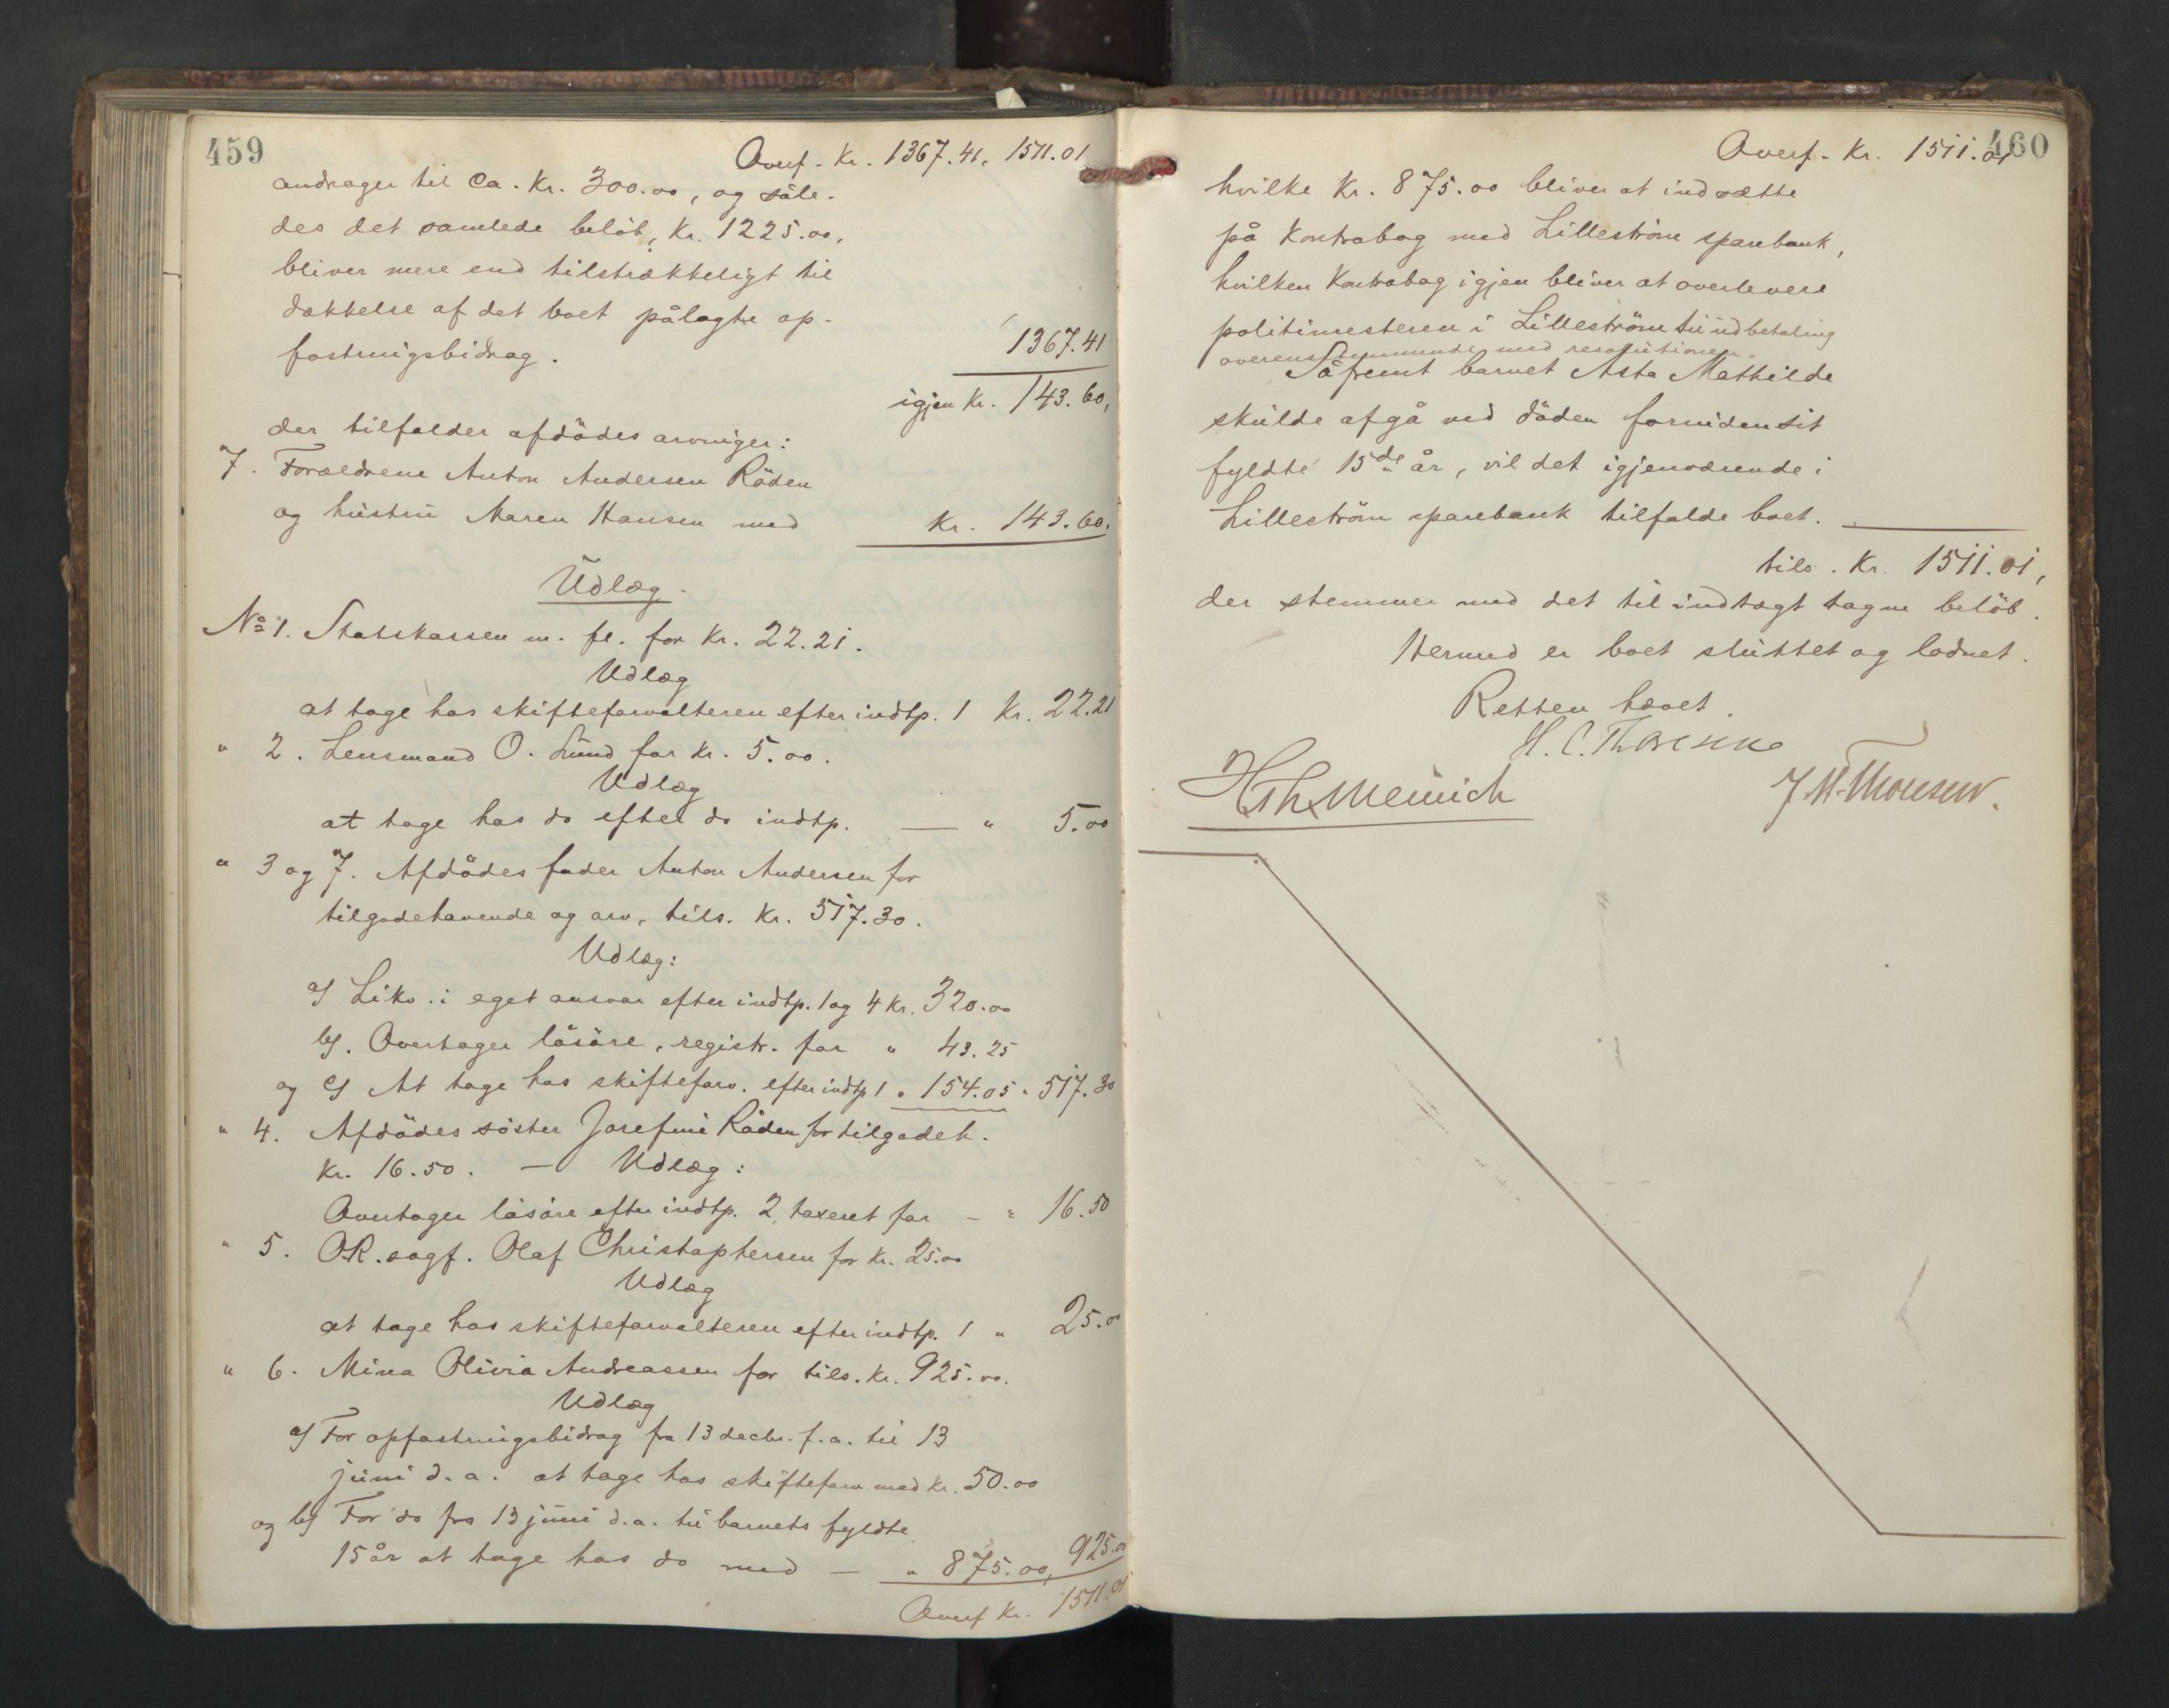 459
Overf. Kr. 1367.41. 1511.01
andrager til ca. Kr. 300.00, og såle-
des det samlede beløb, Kr. 1225.00,
bliver mere end tilstrækkeligt til
dækkelse af det boet pålagte op-
fostringsbidrag.
1367.41
igjen Kr. 143.60,
der tilfalder afdödes arvinger:
7. Forældrene Anton Andersen Röden
og hustru Maren Hansen med Kr. 143.60.
Udlæg.
No 1. Statskassen m. fl. for Kr. 22.21.
Udlæg
at tage hos skifteforvalteren efter indtp. 1 Kr. 22.21
" 2. Lensmand O. Lund for Kr. 5.00.
Udlæg
at tage hos do efter do indtp. — " 5.00
" 3 og 7. Afdödes fader Anton Andersen for
tilgodehavende og arv, tils. Kr. 517.30.
Udlæg:
a) Likv. i eget ansvar efter indtp. 1 og 4 Kr. 320.00
b). Overtager lösöre, registr. for " 43.25
og c) At tage hos skifteforv. efter indtp 1 " 154.05 " 517.30
" 4. Afdödes söster Josefine Röden for tilgodeh.
Kr. 16.50. — Udlæg:
Overtager lösöre efter indtp. 2, taxeret for - " 16.50
" 5. O.R.sagf. Olaf Christophersen for Kr. 25.00
Udlæg
at tage hos skifteforvalteren efter indtp. 1 " 25.00
" 6. Mina Olivia Andreassen for tils. Kr. 925.00.
Udlæg
a) For opfostringsbidrag fra 13 decbr. f.a. til 13
juni d.a. at tage hos skifteforv med Kr. 50.00
og b) For do fra 13 juni d.a. til barnets fyldte
15 år at tage hos do med — " 875.00, 925.00
Overf Kr. 1511.01
460
Overf. Kr. 1511.01
hvilke Kr. 875.00 bliver at indsætte
på Kontrabog med Lilleström sparebank,
hvilken Kontrabog igjen bliver at overlevere
politimesteren i Lilleström til udbetaling
overensstemmende med resolutionen.
Såfremt barnet Asta Mathilde
skulde afgå ved döden forinden sit
fyldte 15de år, vil det igjenværende i
Lilleström sparebank tilfalde boet. —
tils. Kr. 1511.01,
der stemmer med det til indtægt tagne belöb.
Hermed er boet sluttet og lodnet.
Retten hævet.
H. C. Thoresen
H Th Meinich
J. M. Thoresen.